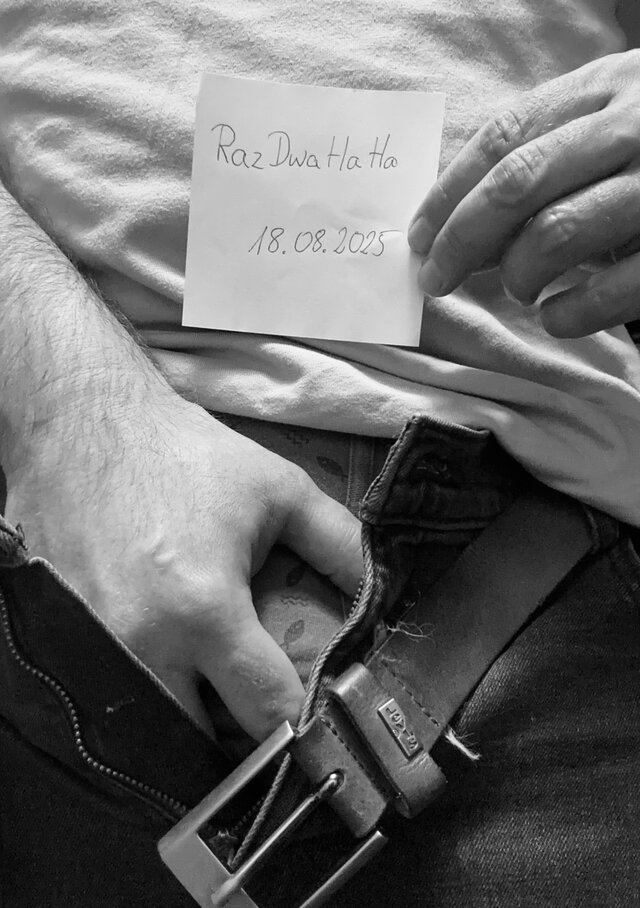 RazDwaHaHa
18.08.2025
LEVI'S